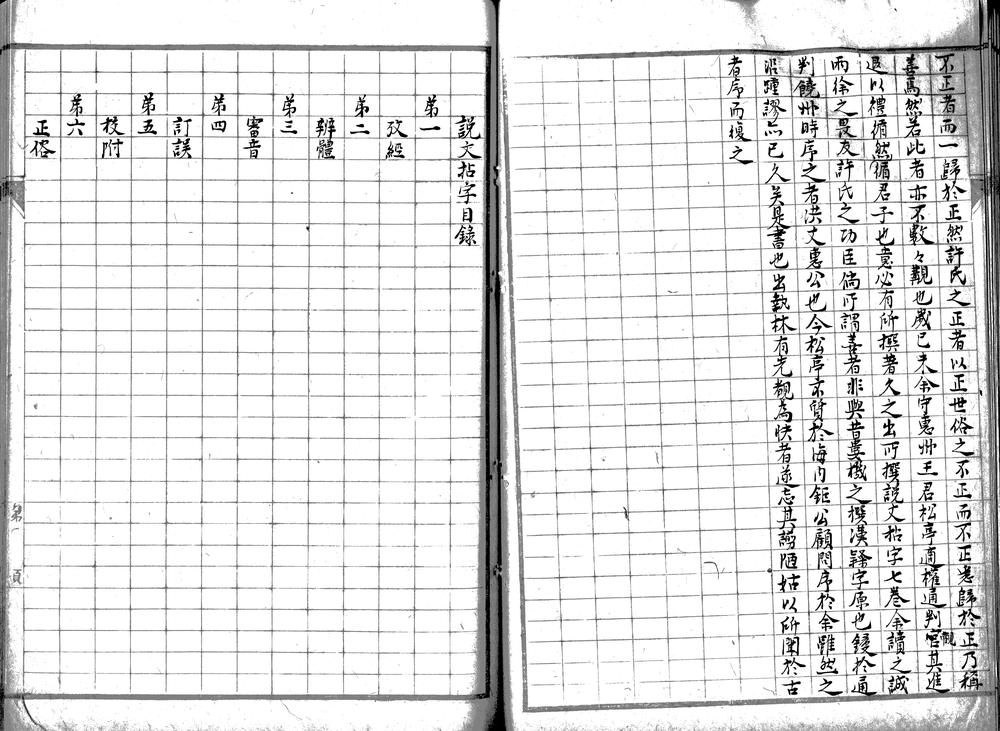 不正者而一歸於正然許氏之正者以正世俗之不正而不正悉歸於正乃稱
善焉然若此者亦不數々觀也歲己未余守惠州王君松亭適權通判官觀其進
退以禮循然循君子也意必有所撰著久之出所撰說文拈字七卷余讀之誠
兩徐之畏友許氏之功臣倘所謂善者非與昔婁機之撰漢隸字原也鋟於通
判饒州時序之者洪文惠公也今松亭不質於海內鉅公顧問序於余雖然之
沿踵謬亦已久矣是書也出執林有先觀為快者遂忘其謭陋姑以所聞於古
者序而複之
說文拈字目錄
第一
攷經
第二
辨體
第三
審音
第四
訂誤
第五
校附
第六
正俗
第一頁